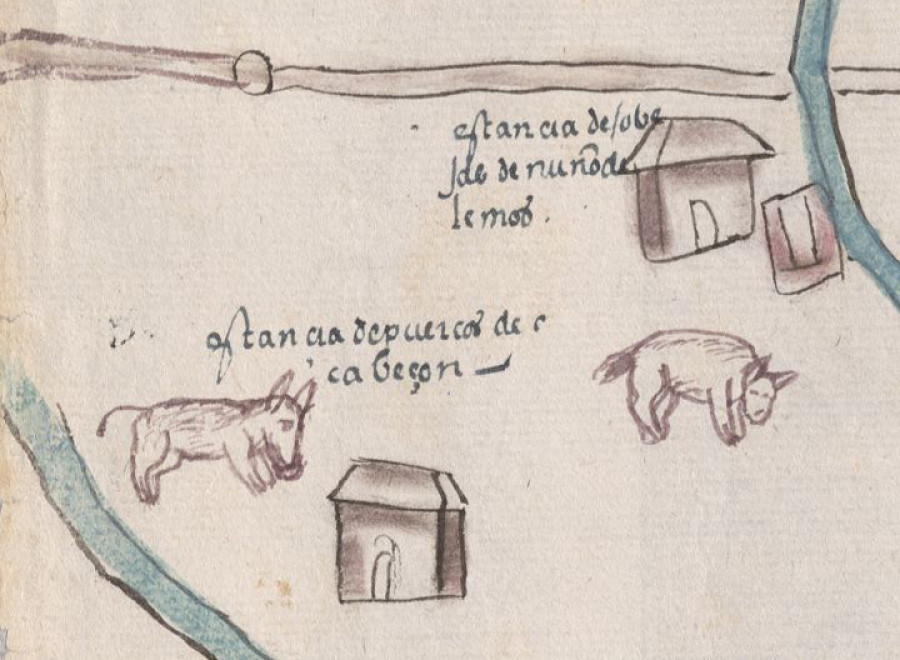 estancia de obe
jas de nuño de
lemos.
estancia de puercos de c
cabeçon